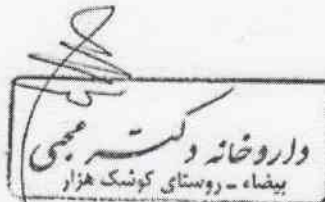 داروخانه دکتر
بیضاء - روستای کوشک هزار